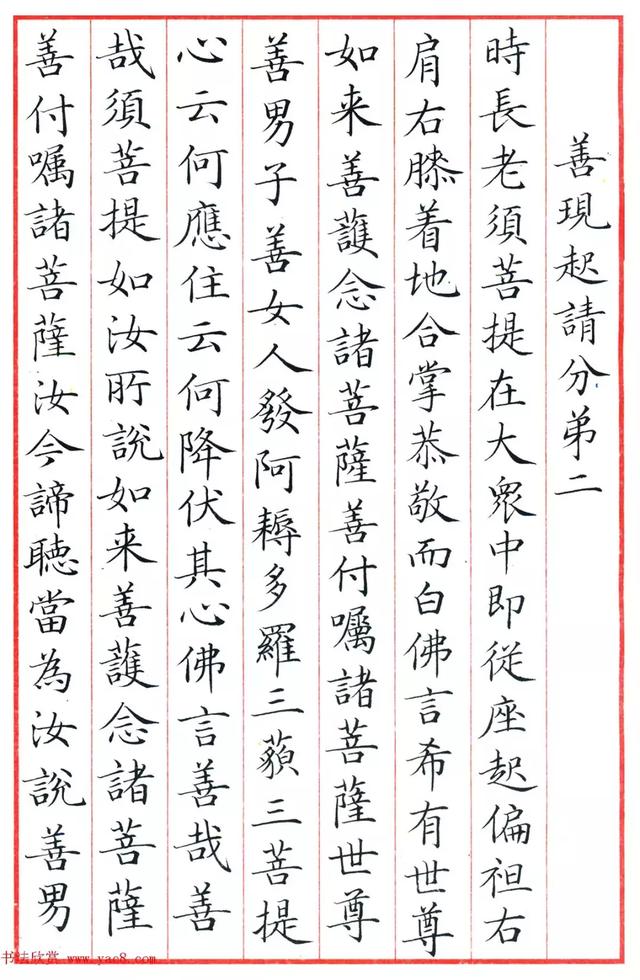 善現起請分第二
時長老須菩提在大衆中即従座起偏袒右
肩右膝着地合掌恭敬而白佛言希有世尊
如来善護念諸菩薩善付囑諸菩薩世尊
善男子善女人發阿耨多羅三藐三菩提
心云何應住云何降伏其心佛言善哉善
哉須菩提如汝所說如来善護念諸菩薩
善付囑諸菩薩汝今諦聽當為汝說善男
书法欣赏 www.yac8.com